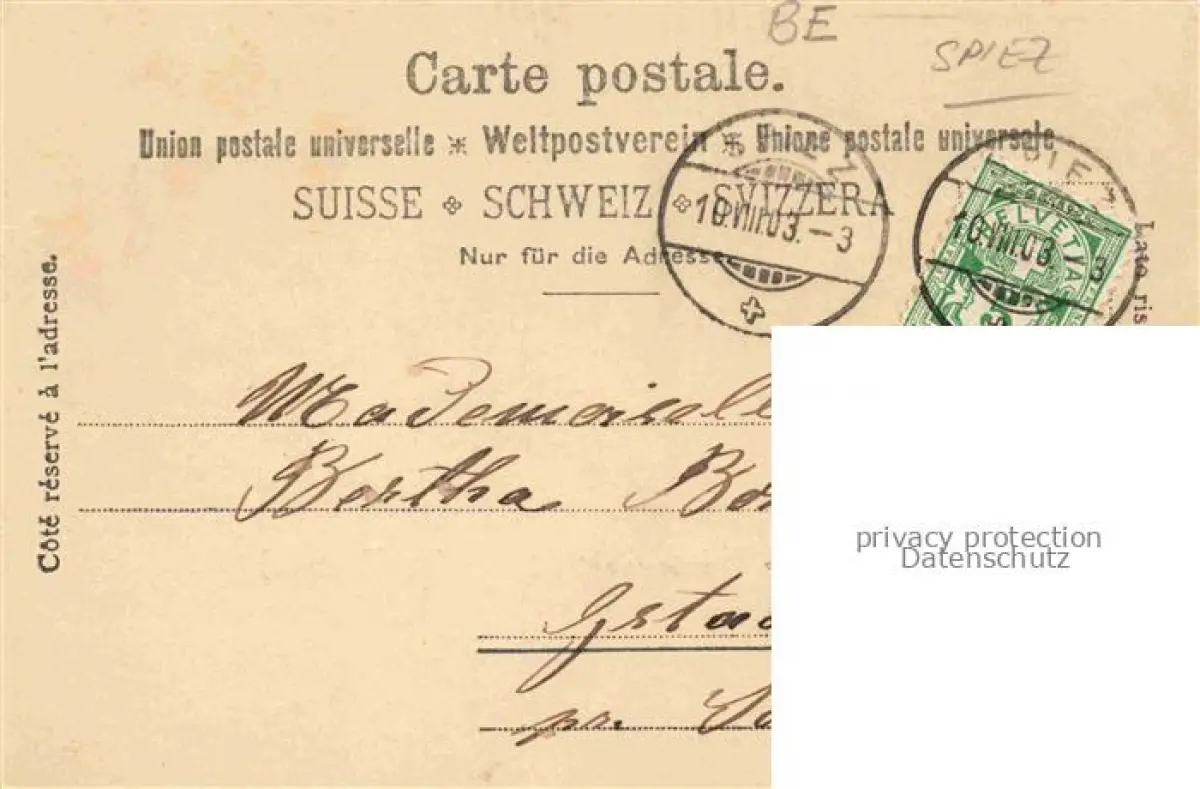 BE
SPIEZ
Carte postale.
Union postale universelle * Weltpostverein * Unione postale universale
SUISSE * SCHWEIZ * SVIZZERA
Nur für die Adresse
Côté réservé à l'adresse.
Lato ris
10.VIII.03.-3
10.VIII.03
3
HELVETIA
Mademoisell
Bertha Bo
Gstaa
pr.
privacy protection
Datenschutz